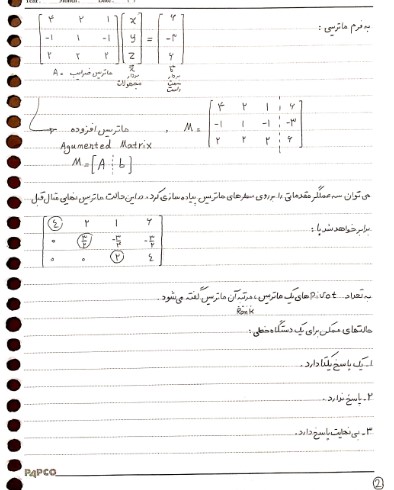 به فرم ماتریسی :
[۴ ۲ ۱] [x] = [۶]
[-۱ ۱ -۱] [y] [-۳]
[۲ ۲ ۲] [z] [۶]
A = ماتریس ضرایب x⃗ بردار مجهولات b⃗ بردار سمت راست
ماتریس افزوده , M = [۴ ۲ ۱ ¦ ۶]
Agumented Matrix [-۱ ۱ -۱ ¦ -۳]
M = [A ¦ b] [۲ ۲ ۲ ¦ ۶]
می توان سه عملگر مقدماتی را بر روی سطرهای ماتریس پیاده سازی کرد. در این حالت ماتریس نهایی مثال قبل
برابر خواهد شد با :
[۴ ۲ ۱ ۶]
[۰ ۳/۲ -۳/۴ -۳/۲]
[۰ ۰ ۲ ۴]
به تعداد Pivot های یک ماتریس ، مرتبه آن ماتریس گفته می شود .
Rank
حالتهای ممکن برای یک دستگاه خطی :
۱- یک پاسخ یکتا دارد .
۲- پاسخ ندارد .
۳- بی نهایت پاسخ دارد .
PAPCO
2